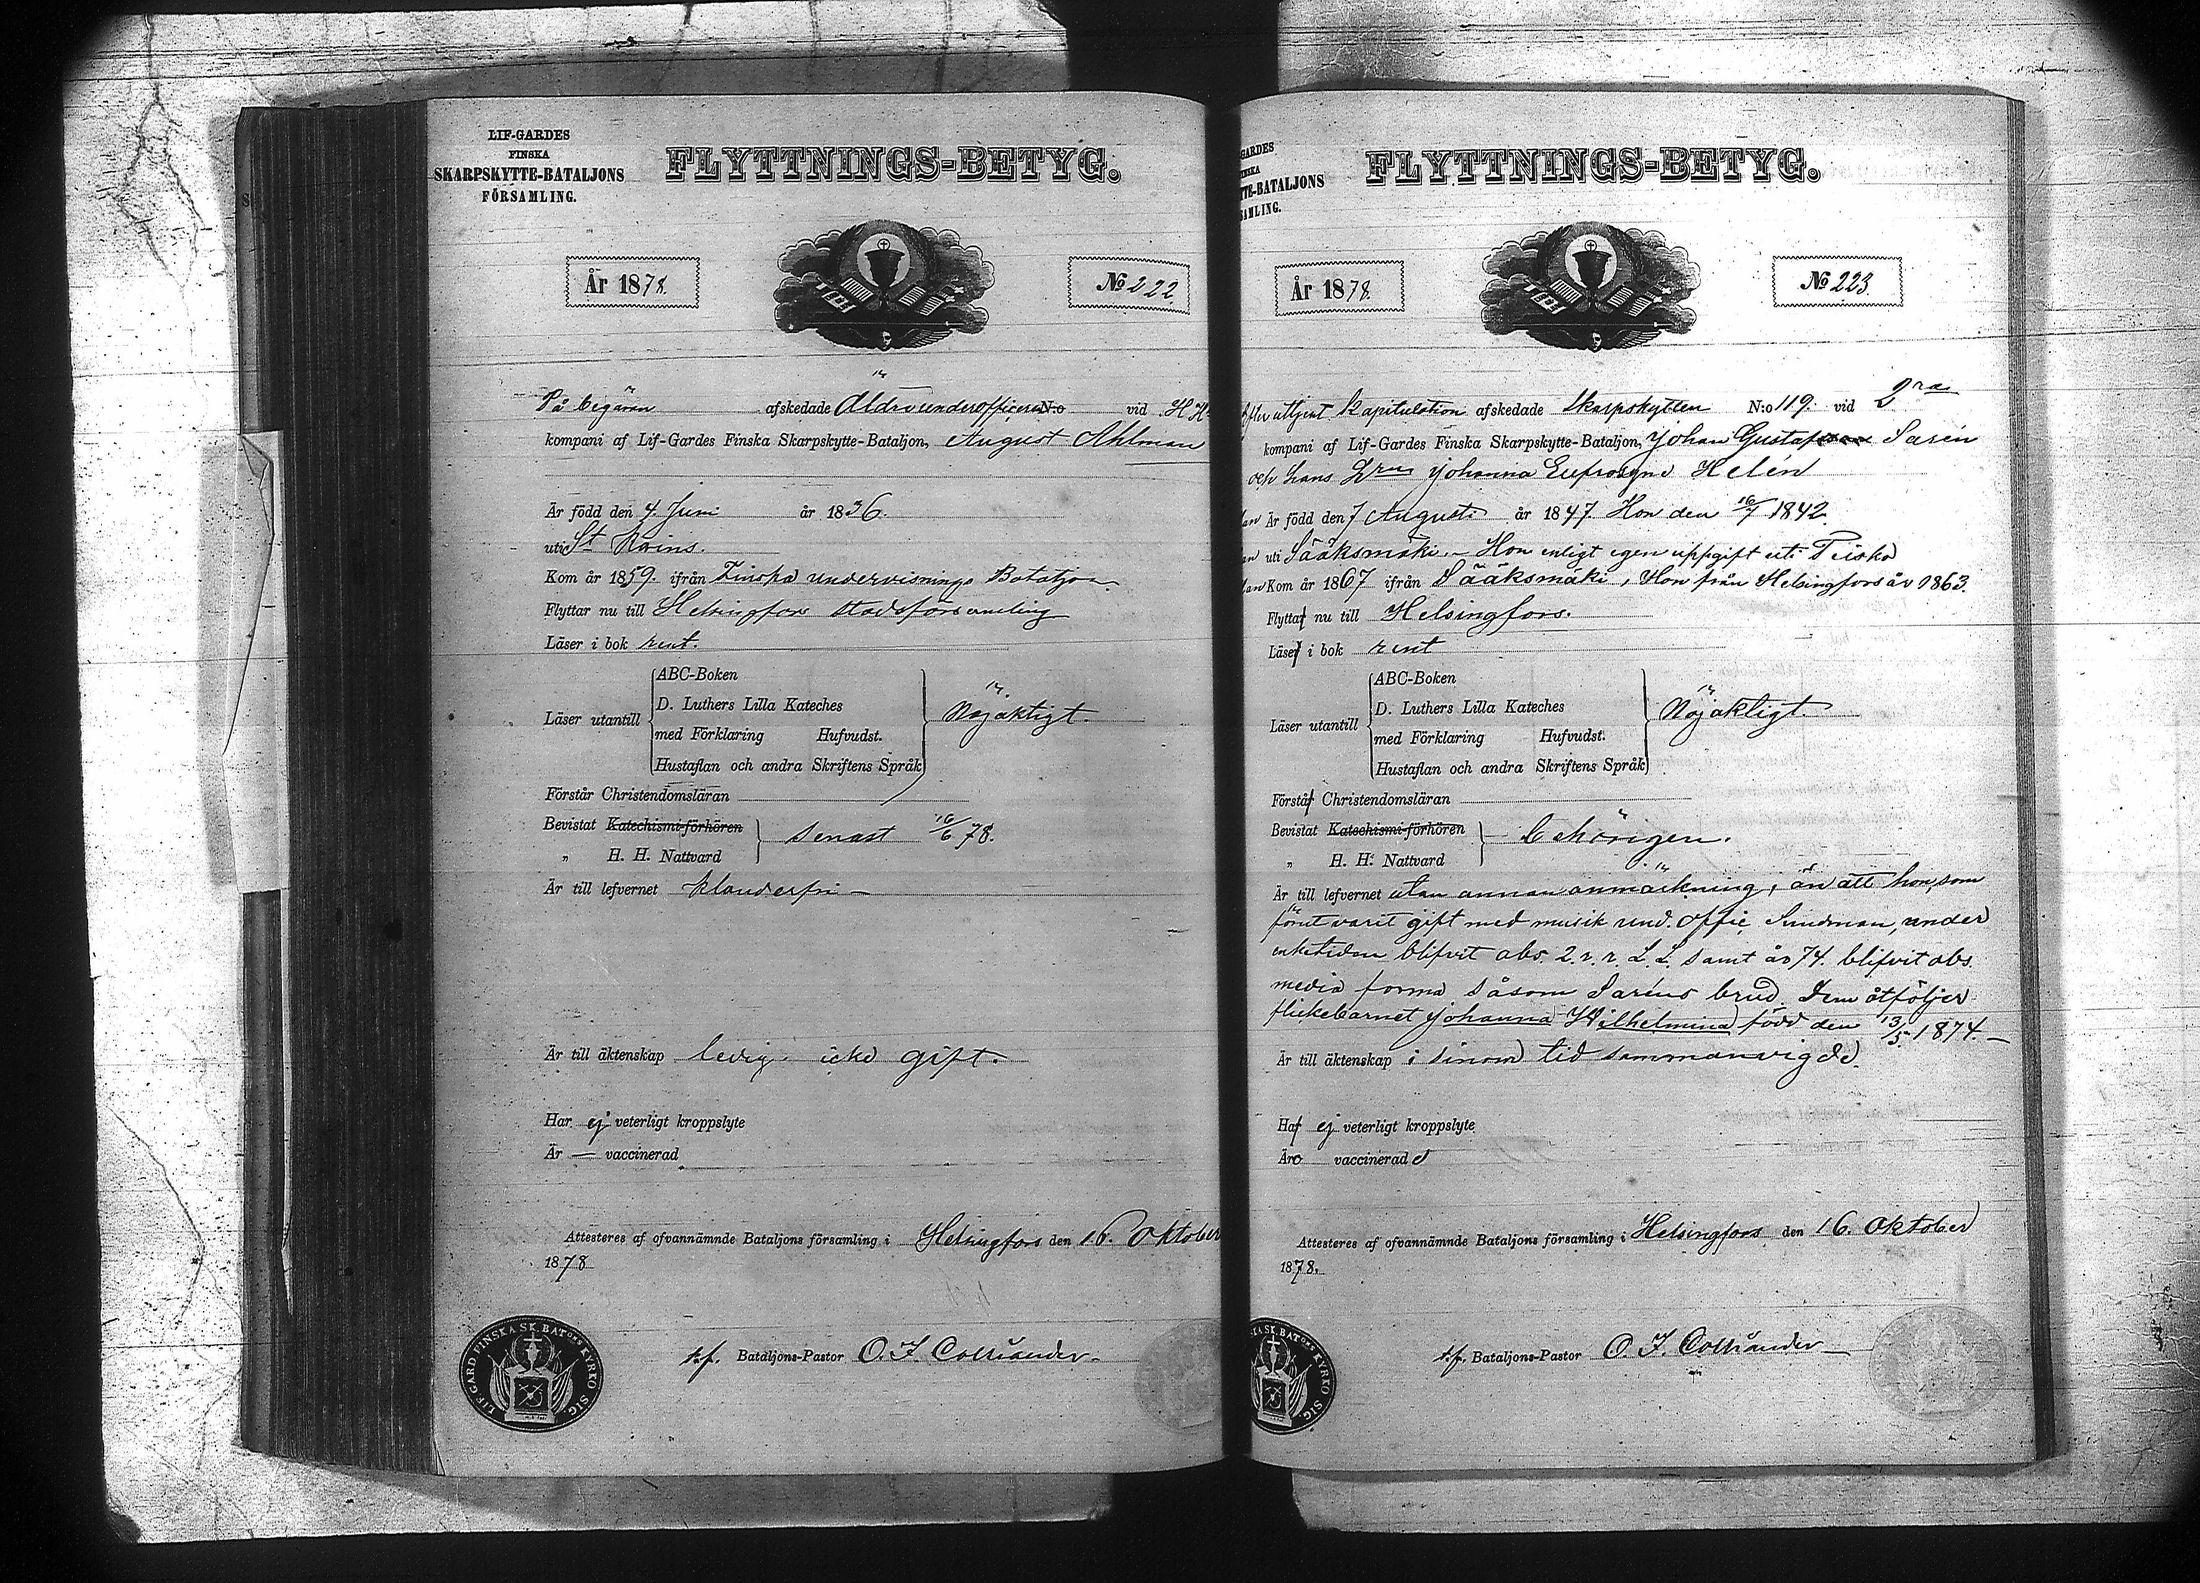 LIF-GARDES
FINSKA
SKARPSKYTTE-BATALJONS
FÖRSAMLING.
FLYTTNINGS-BETYG.
År 1878.
No 222.
På begäran afskedade Äldre underofficeren N:o vid H. H.
kompani af Lif-Gardes Finska Skarpskytte-Bataljon, August Ahlman
Är född den 4. Juni år 1836.
uti St Karins.
Kom år 1859. ifrån Finska undervisnings Bataljon.
Flyttar nu till Helsingfors stadsförsamling
Läser i bok rent.
Läser utantill
ABC-Boken
D. Luthers Lilla Kateches
med Förklaring Hufvudst.
Hustaflan och andra Skriftens Språk
Nöjaktigt.
Förstår Christendomsläran
Bevistat Katechismi-förhören
„ H. H. Nattvard
senast 16/6 78.
Är till lefvernet klanderfri —
Är till äktenskap ledig. icke gift.
Har ej veterligt kroppslyte
Är — vaccinerad
Attesteres af ofvannämnde Bataljons församling i Helsingfors den 16. Oktober
1878
t.f. Bataljons-Pastor O. F. Colliander.
LIF-GARD FINSKA SK. BATONS KYRKO SIG.
GARDES
TE-BATALJONS
FLYTTNINGS-BETYG.
År 1878.
No 223.
Efter uttjent Kapitulation afskedade Skarpskytten N:o 119. vid 2ra
kompani af Lif-Gardes Finska Skarpskytte-Bataljon, Johan Gustaf Sarén
och hans Johanna Eufrosyne Helén
Är född den 7 Augusti år 1847. Hon den 16/7 1842.
uti Sääksmäki. — Hon enligt egen uppgift uti Teisko
Kom år 1867 ifrån Sääksmäki, Hon från Helsingfors år 1863.
Flytta nu till Helsingfors.
Läse i bok rent
Läser utantill
ABC-Boken
D. Luthers Lilla Kateches
med Förklaring Hufvudst.
Hustaflan och andra Skriftens Språk
Nöjaktigt.
Förstå Christendomsläran
Bevistat Katechismi-förhören
„ H. H. Nattvard
— behörigen.
Är till lefvernet utan annan anmärkning, än att hon, som
förut varit gift med musik und. offic Sundman, under
enketiden blifvit abs. 2. r. r. L. L. samt år 74. blifvit abs.
media forma såsom Saréns brud. Dem åtföljer
flickebarnet Johanna Wilhelmina född den 13/5 1874. —
Är till äktenskap i sinom tid sammanvigde.
Ha ej veterligt kroppslyte
Äro vaccinerade
Attesteres af ofvannämnde Bataljons församling i Helsingfors den 16. Oktober
1878.
t.f. Bataljons-Pastor O. F. Colliander —
SK. BATONS KYRKO SIG.